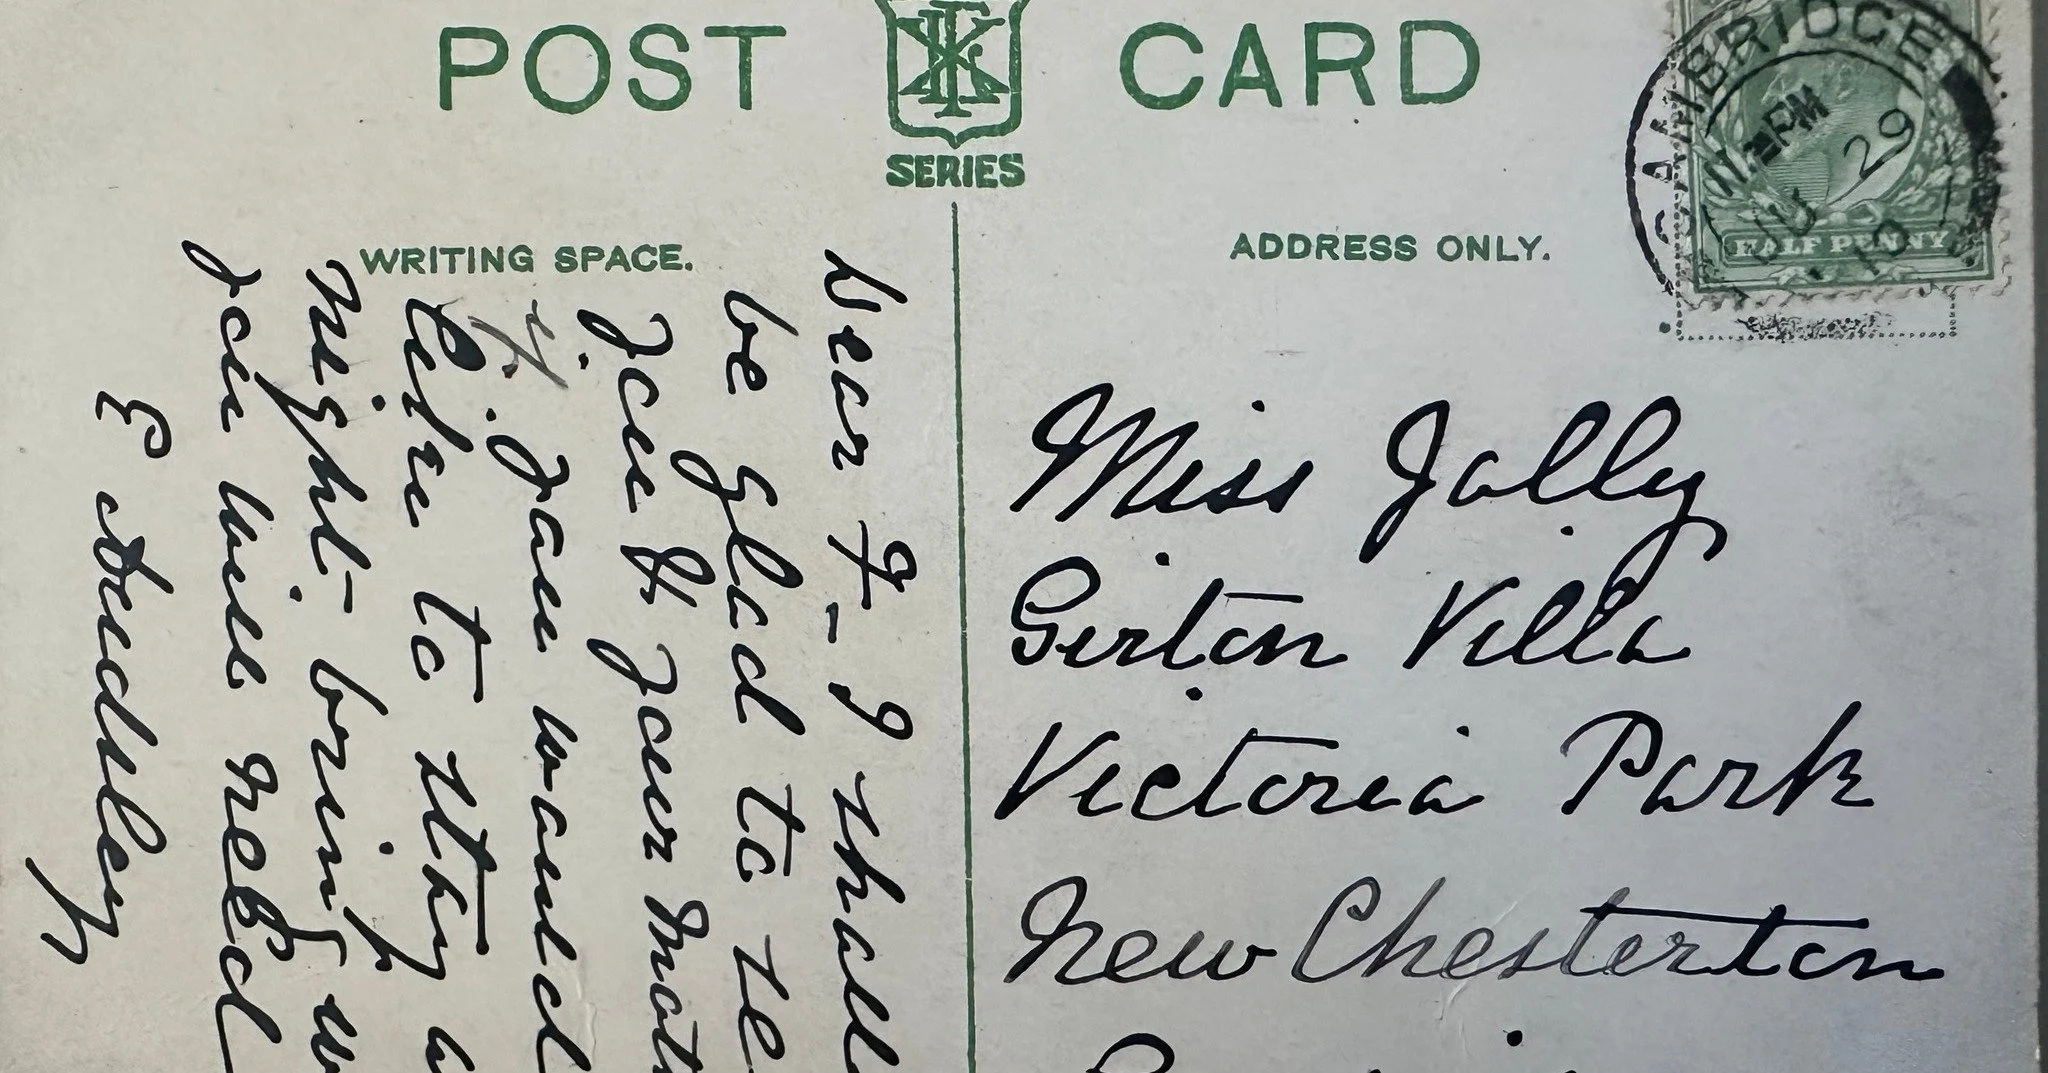 POST CARD
SERIES
WRITING SPACE.
ADDRESS ONLY.
CAMBRIDGE
PM
JU 29
10
HALF PENNY
Dear F - I shall
be glad to se
you & your Moth
if you would
like to stay a
might bring w
you will need
E Audsley
Miss Jolly
Girton Villa
Victoria Park
New Chesterton